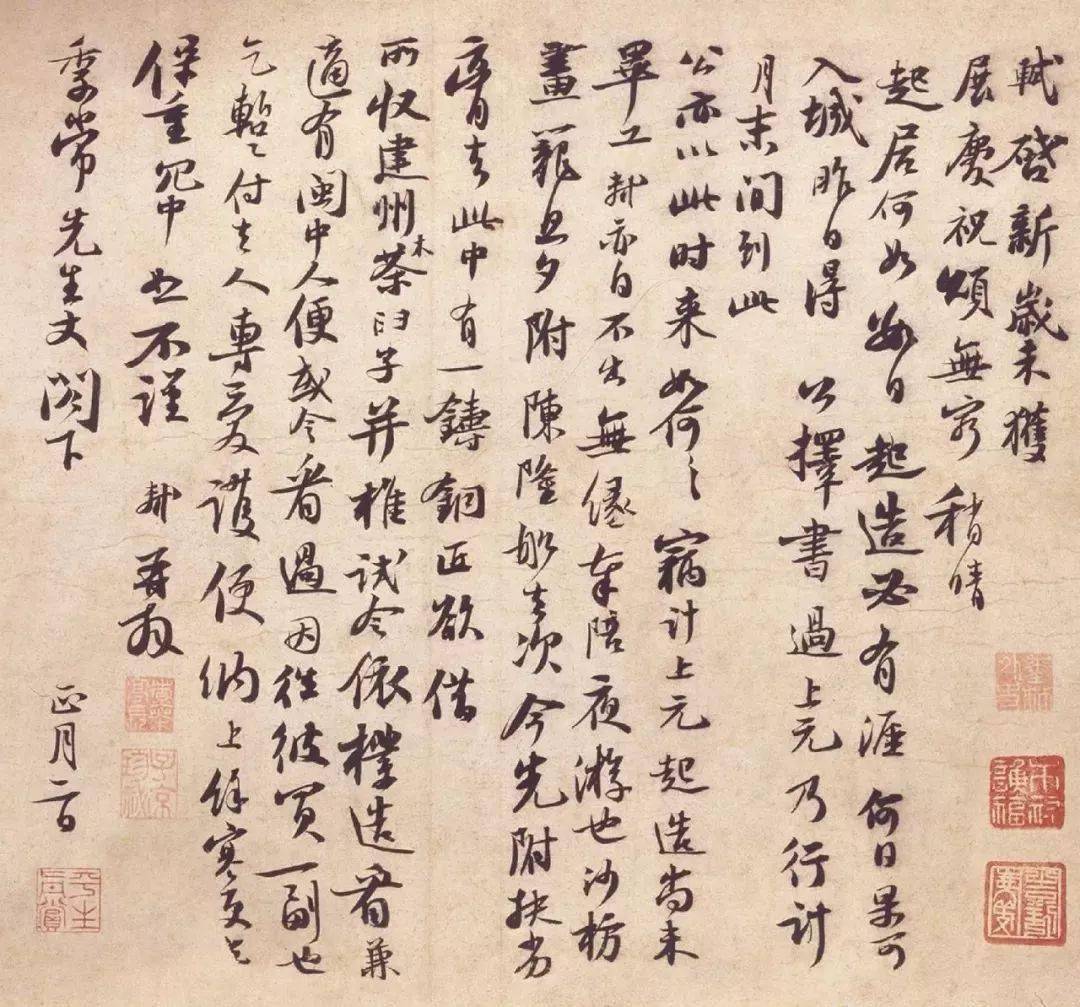 軾啓新歲未獲
展慶祝頌無窮稍晴
起居何如數日起造必有涯何日果可
入城昨日得公擇書過上元乃行計
月末間到此
公亦以此時來如何々竊計上元起造尚未
畢工軾亦自不出無緣奉陪夜游也沙枋
畫籠旦夕附陳隆船去次今先附扶劣
膏去此中有一鑄銅匠欲借
所收建州木茶臼子并椎試令依樣造看兼
適有閩中人便或令看過因往彼買一副也
乞暫付去人專愛護便納上餘寒更乞
保重冗中恕不謹軾再拜
季常先生丈閣下
正月二日